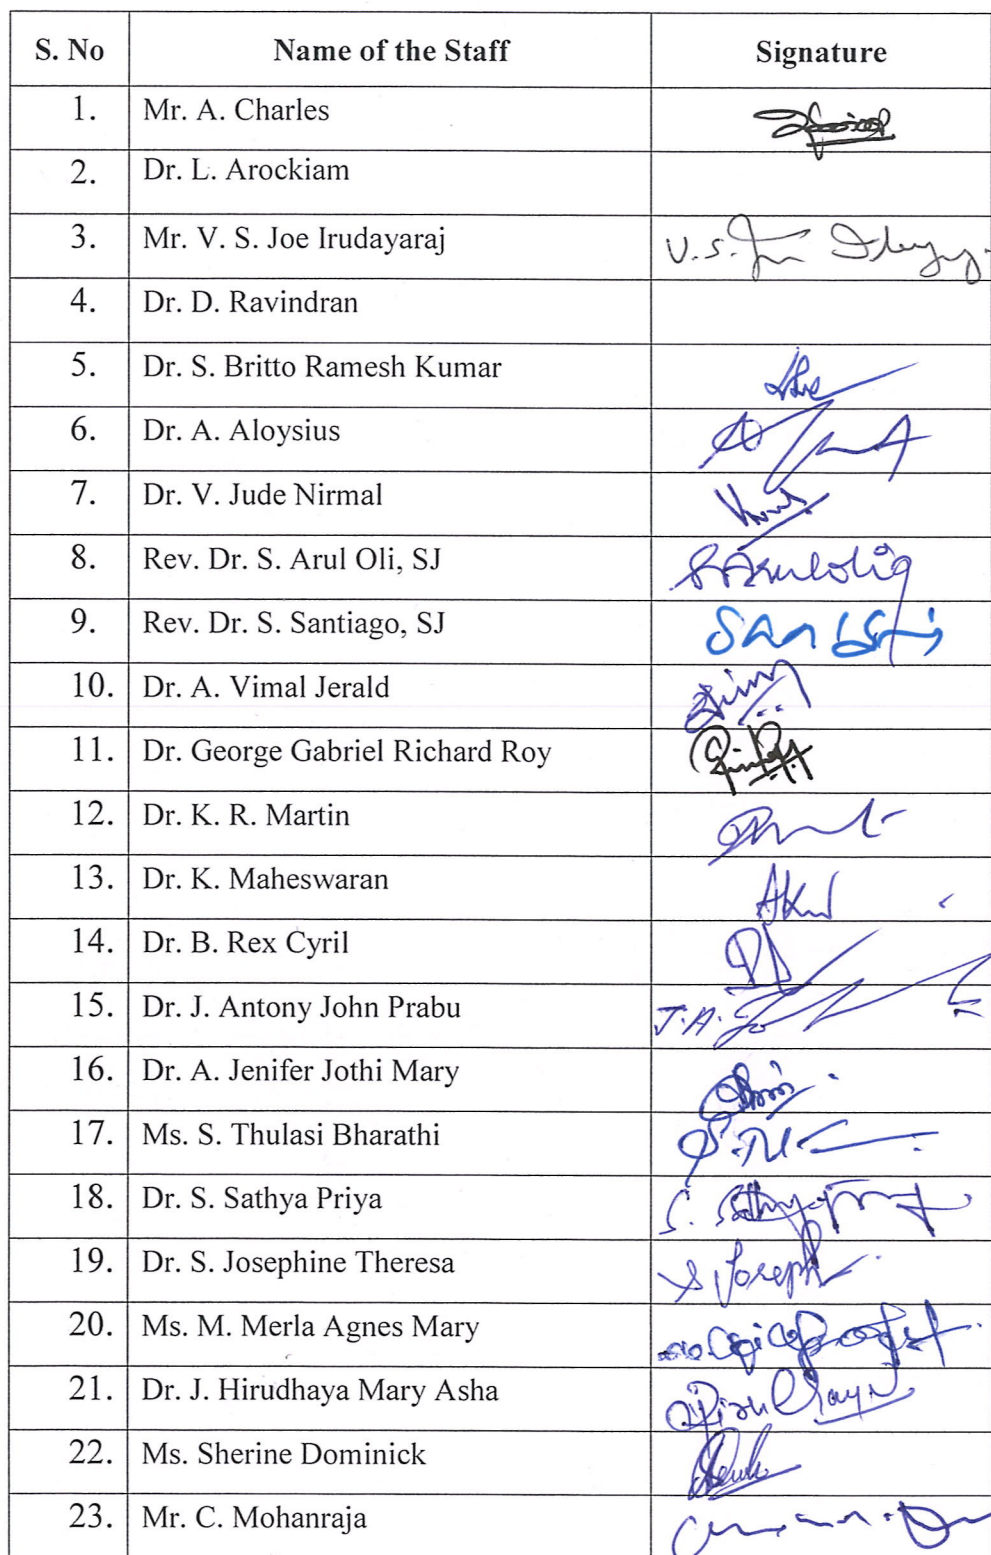 S. No Name of the Staff Signature
1. Mr. A. Charles
2. Dr. L. Arockiam
3. Mr. V. S. Joe Irudayaraj V.S. Joe
4. Dr. D. Ravindran
5. Dr. S. Britto Ramesh Kumar
6. Dr. A. Aloysius
7. Dr. V. Jude Nirmal
8. Rev. Dr. S. Arul Oli, SJ
9. Rev. Dr. S. Santiago, SJ
10. Dr. A. Vimal Jerald
11. Dr. George Gabriel Richard Roy
12. Dr. K. R. Martin
13. Dr. K. Maheswaran
14. Dr. B. Rex Cyril
15. Dr. J. Antony John Prabu J.A.
16. Dr. A. Jenifer Jothi Mary
17. Ms. S. Thulasi Bharathi
18. Dr. S. Sathya Priya S. Sathya
19. Dr. S. Josephine Theresa S Joseph
20. Ms. M. Merla Agnes Mary
21. Dr. J. Hirudhaya Mary Asha
22. Ms. Sherine Dominick
23. Mr. C. Mohanraja